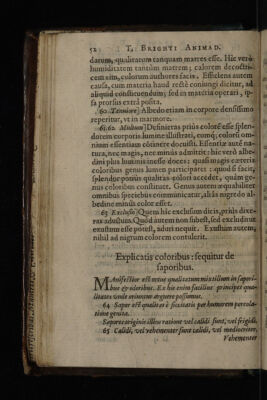 52 T. BRIGHTI ANIMAD.
darum, qualitatum tanquam matres esse. Hic verò
humiditatem tantùm matrem; calorem decocti-
cem sim, colorum authores facis. Efficiens autem
causa, cum materia haud rectè coniungi dicitur, ad
aliquid constituendum; sed in materia operari, ip-
sa prorsus extrà posita.
60 Tenuiore] Albedo etiam in corpore densissimo
reperitur, vt in marmore.
61.62 Multum] Definieras priùs colorē esse splen-
dorem corporis lumine illustrati, cumq; coloris om-
niam essentiam cōtinere docuisti. Essentiæ autē na-
tura, nec magis, nec minùs admittit: hic verò albe-
dini plus luminis inesse doces: quasi magis cæteris
coloribus genus lumen participet: quod si facis,
splendor potiùs qualitas colori accedet, quàm ge-
nus coloribus constituet. Genus autem æquabiliter
omnibus speciebus communicatur, aliàs nigredo al-
bedine minùs color esset.
63 Exclusio] Quem hîc exclusum dicis, priùs dixe-
ras adustum. Quòd autem non subest, sed excluditur
exustum esse potest, aduri nequit. Exustum autem,
nihil ad nigrum colorem contulerit.
Explicatis coloribus: sequitur de
saporibus.
MAnifestior est mixtæ qualitatum mistilium in sapori-
bus & odoribus. Ex his enim facilius principes qua-
litates vnde oriuntur arguere possumus.
64 Sapor est qualitas è siccitatis per humorem percola-
tione genita.
Sapores originis illius ratione vel calidi sunt, vel frigidi.
65 Calidi, vel vehementer sunt calidi, vel mediocriter.
Vehementer